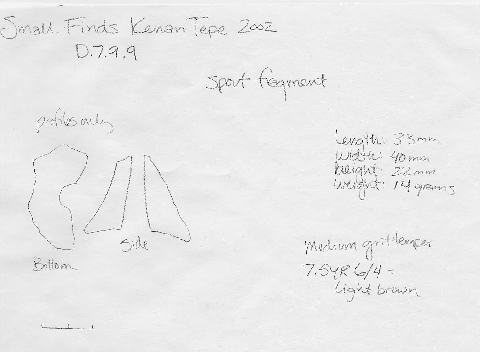 Small Finds Kenan Tepe 2002
D.7.9.9
Spout fragment
profiles only
Length: 33mm
Width: 40mm
height: 22mm
weight: 14 grams
Side
Bottom
Medium grit temper
7.5YR 6/4 -
light brown